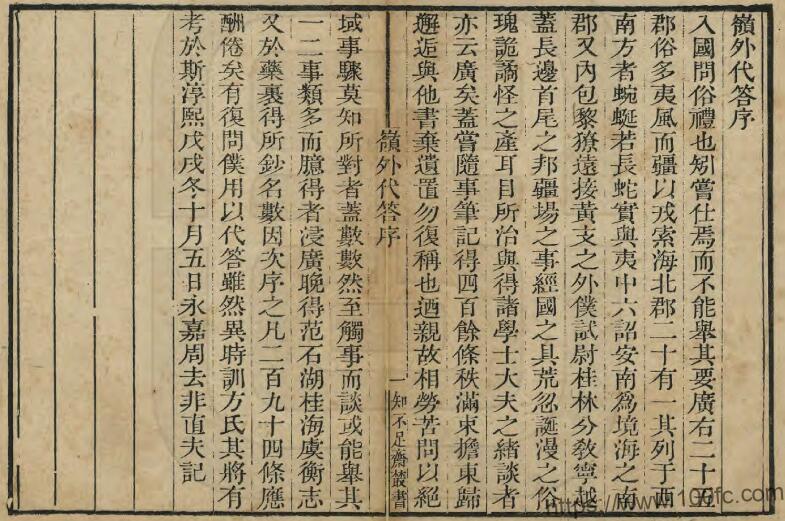 嶺外代答序
入國問俗禮也矧嘗仕焉而不能舉其要廣右二十五
郡俗多夷風而疆以戎索海北郡二十有一其列于西
南方者蜿蜒若長蛇實與夷中六詔安南爲境海之南
郡又內包黎獠遠接黃支之外僕試尉桂林分敎寧越
蓋長邊首尾之邦疆場之事經國之具荒忽誕漫之俗
瑰詭譎怪之產耳目所治與得諸學士大夫之緒談者
亦云廣矣蓋嘗隨事筆記得四百餘條秩滿束擔東歸
邂逅與他書棄遺置勿復稱也迺親故相勞苦問以絕
嶺外代答序
一
知不足齋叢書
域事驟莫知所對者蓋數數然至觸事而談或能舉其
一二事類多而臆得者浸廣晚得范石湖桂海虞衡志
又於藥裹得所鈔名數因次序之凡二百九十四條應
酬倦矣有復問僕用以代答雖然異時訓方氏其將有
考於斯淳熙戊戌冬十月五日永嘉周去非直夫記
https://www.100fc.com